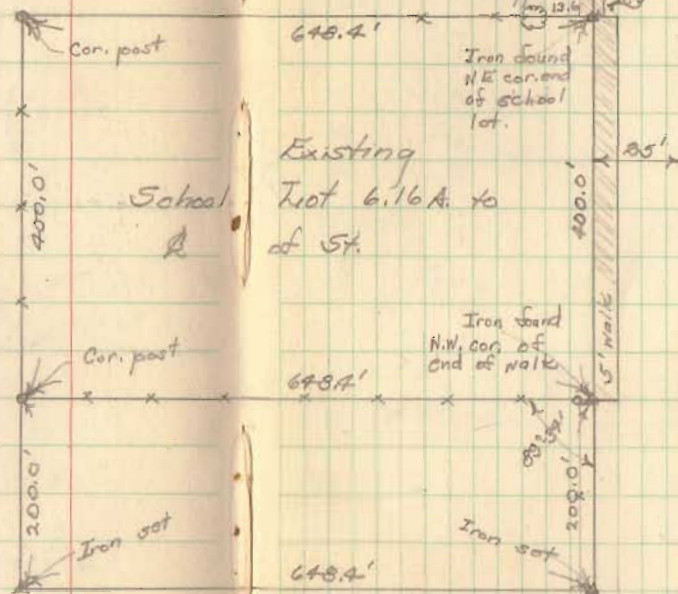 13.6
648.4'
Cor. post
Iron found
NE cor. end
of school
lot.
Existing
School Lot 6.16 A. to
of St.
400.0'
400.0'
25'
5' walk
Iron found
N.W. cor. of
end of walk
Cor. post
648.4'
89°59'
200.0'
200.0'
Iron set
Iron set
648.4'